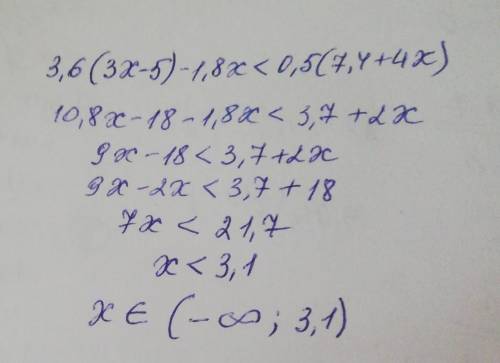 3,6(3x-5)-1,8x<0,5(7,4+4x)
10,8x-18-1,8x<3,7+2x
9x-18<3,7+2x
9x-2x<3,7+18
7x<21,7
x<3,1
x∈(-∞;3,1)